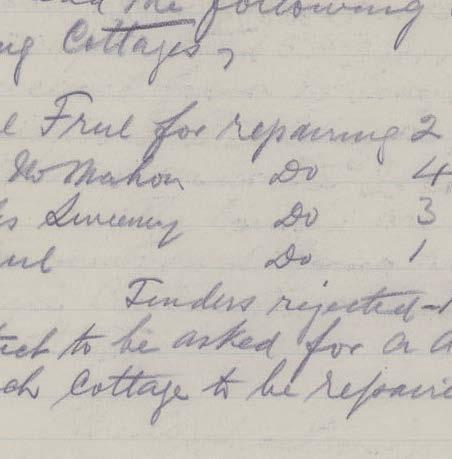 and the following
ng Cottages,
l Friel for repairing 2
McMahon Do 4
s Sweeney Do 3
Do 1
Tenders rejected
to be asked for a
ch Cottage to be repaire